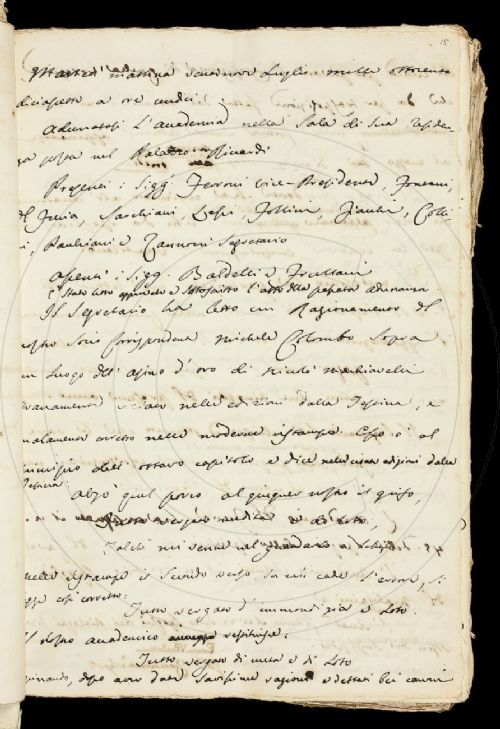 15
Martedì mattina ventinove Luglio mille ottocento
diciassette a ore undici
Adunatasi l'Accademia nella Sala di Sua residen-
za posta nel Palazzo Riccardi
Presenti: Sigg. Ferroni Vice-Presidente, Fontani,
del Furia, Sarchiani, Lessi, Follini, Fiacchi, Colli-
ni, Pauliani e Zannoni Segretario
Assenti: Sigg. Baldelli e Frullani
È stato letto approvato e sottoscritto l'atto della passata adunanza.
Il Segretario ha letto un Ragionamento del
nostro Socio Corrispondente Michele Colombo Sopra
un luogo dell'asino d'oro di Niccolò Machiavelli
stranamente viziato nelle edizioni della Testina, e
malamente corretto nelle moderne ristampe. Esso è al
principio dell'ottavo capitolo e dice nelle edizioni della
Testina:
alzò quel porco al giugner nostro il grifo,
vergato di loto;
Talchè mi venne nel guardarlo a schifo.
nelle ristampe il secondo verso, in cui cade l'errore, si
legge così corretto:
Tutto vergato d'immondizia e loto.
Il nostro accademico restituisce:
Tutto vergato di meta e di loto
opinando, dopo aver date savissime ragioni e dettati bei canoni